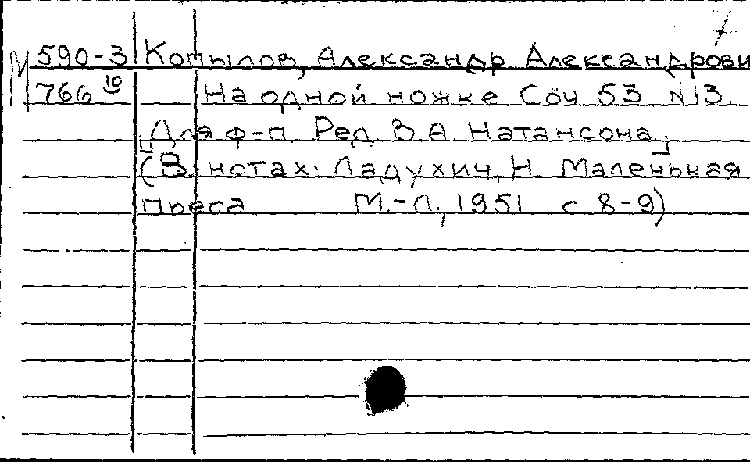 М 590-3 Копылов, Александр Александрови
766 19 На одной ножке Соч 53 N 3
[Для ф-п. Ред В.А. Натансона]
(В нотах: Ладухин, Н. Маленькая
пьеса М.-Л., 1951 с 8-9)